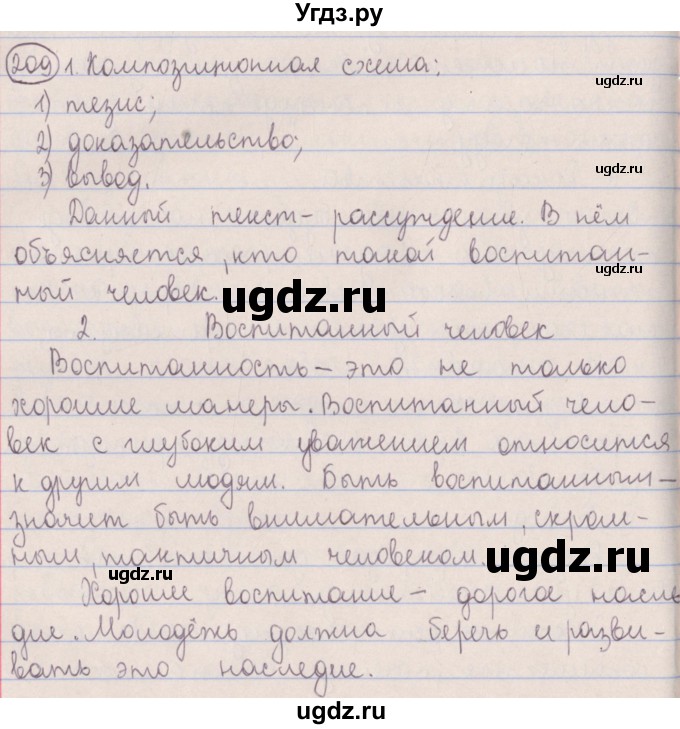 Угдз.ру
209 1. Композиционная схема:
ugdz.ru
1) тезис;
2) доказательство;
3) вывод.
ugdz.ru
Данный текст – рассуждение. В нём
объясняется, кто такой воспитан-
ugdz.ru
ный человек.
ugdz.ru
2. Воспитанный человек
Воспитанность – это не только
хорошие манеры. Воспитанный чело-
век с глубоким уважением относится
к другим людям. Быть воспитанным –
значит быть внимательным, скром-
ным, тактичным человеком.
ugdz.ru
ugdz.ru
Хорошее воспитание – дорогое насле
дие. Молодёжь должна беречь и разви-
вать это наследие.
ugdz.ru